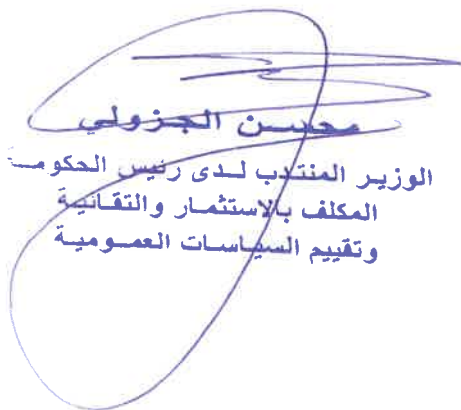 محسن الجزولي
الوزير المنتدب لدى رئيس الحكومة
المكلف بالاستثمار والتقائية
وتقييم السياسات العمومية